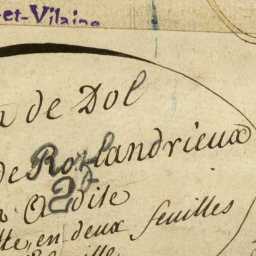 et-Vilaine
a de Dol
de Rozlandrieux
dite
tte en deux feuilles